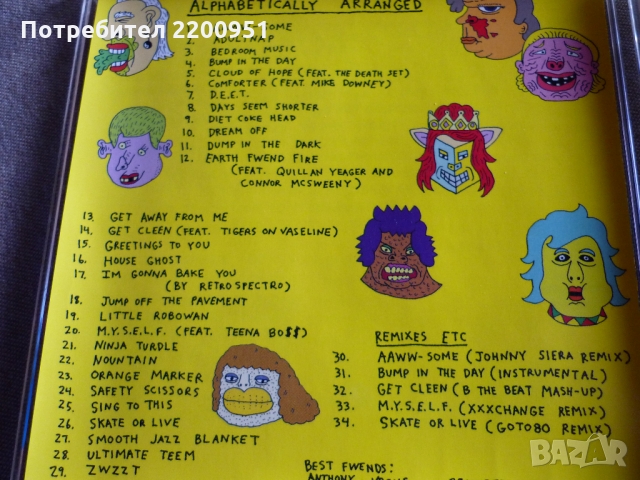 Потребител 2200951
ALPHABETICALLY ARRANGED
SOME
2. ADULTNAP
3. BEDROOM MUSIC
4. BUMP IN THE DAY
5. CLOUD OF HOPE (FEAT. THE DEATH SET)
6. COMFORTER (FEAT. MIKE DOWNEY)
7. D.E.E.T.
8. DAYS SEEM SHORTER
9. DIET COKE HEAD
10. DREAM OFF
11. DUMP IN THE DARK
12. EARTH FWEND FIRE
(FEAT. QUILLAN YEAGER AND
CONNOR MCSWEENY)
13. GET AWAY FROM ME
14. GET CLEEN (FEAT. TIGERS ON VASELINE)
15. GREETINGS TO YOU
16. HOUSE GHOST
17. IM GONNA BAKE YOU
(BY RETROSPECTRO)
18. JUMP OFF THE PAVEMENT
19. LITTLE ROBOWAN
20. M.Y.S.E.L.F. (FEAT. TEENA BO$$)
21. NINJA TURDLE
22. NOUNTAIN
23. ORANGE MARKER
24. SAFETY SCISSORS
25. SING TO THIS
26. SKATE OR LIVE
27. SMOOTH JAZZ BLANKET
28. ULTIMATE TEEM
29. ZWZZT
REMIXES ETC
30. AAWW-SOME (JOHNNY SIERA REMIX)
31. BUMP IN THE DAY (INSTRUMENTAL)
32. GET CLEEN (B THE BEAT MASH-UP)
33. M.Y.S.E.L.F. (XXXCHANGE REMIX)
34. SKATE OR LIVE (GOTO80 REMIX)
BEST FWENDS:
ANTHONY
BAZAR